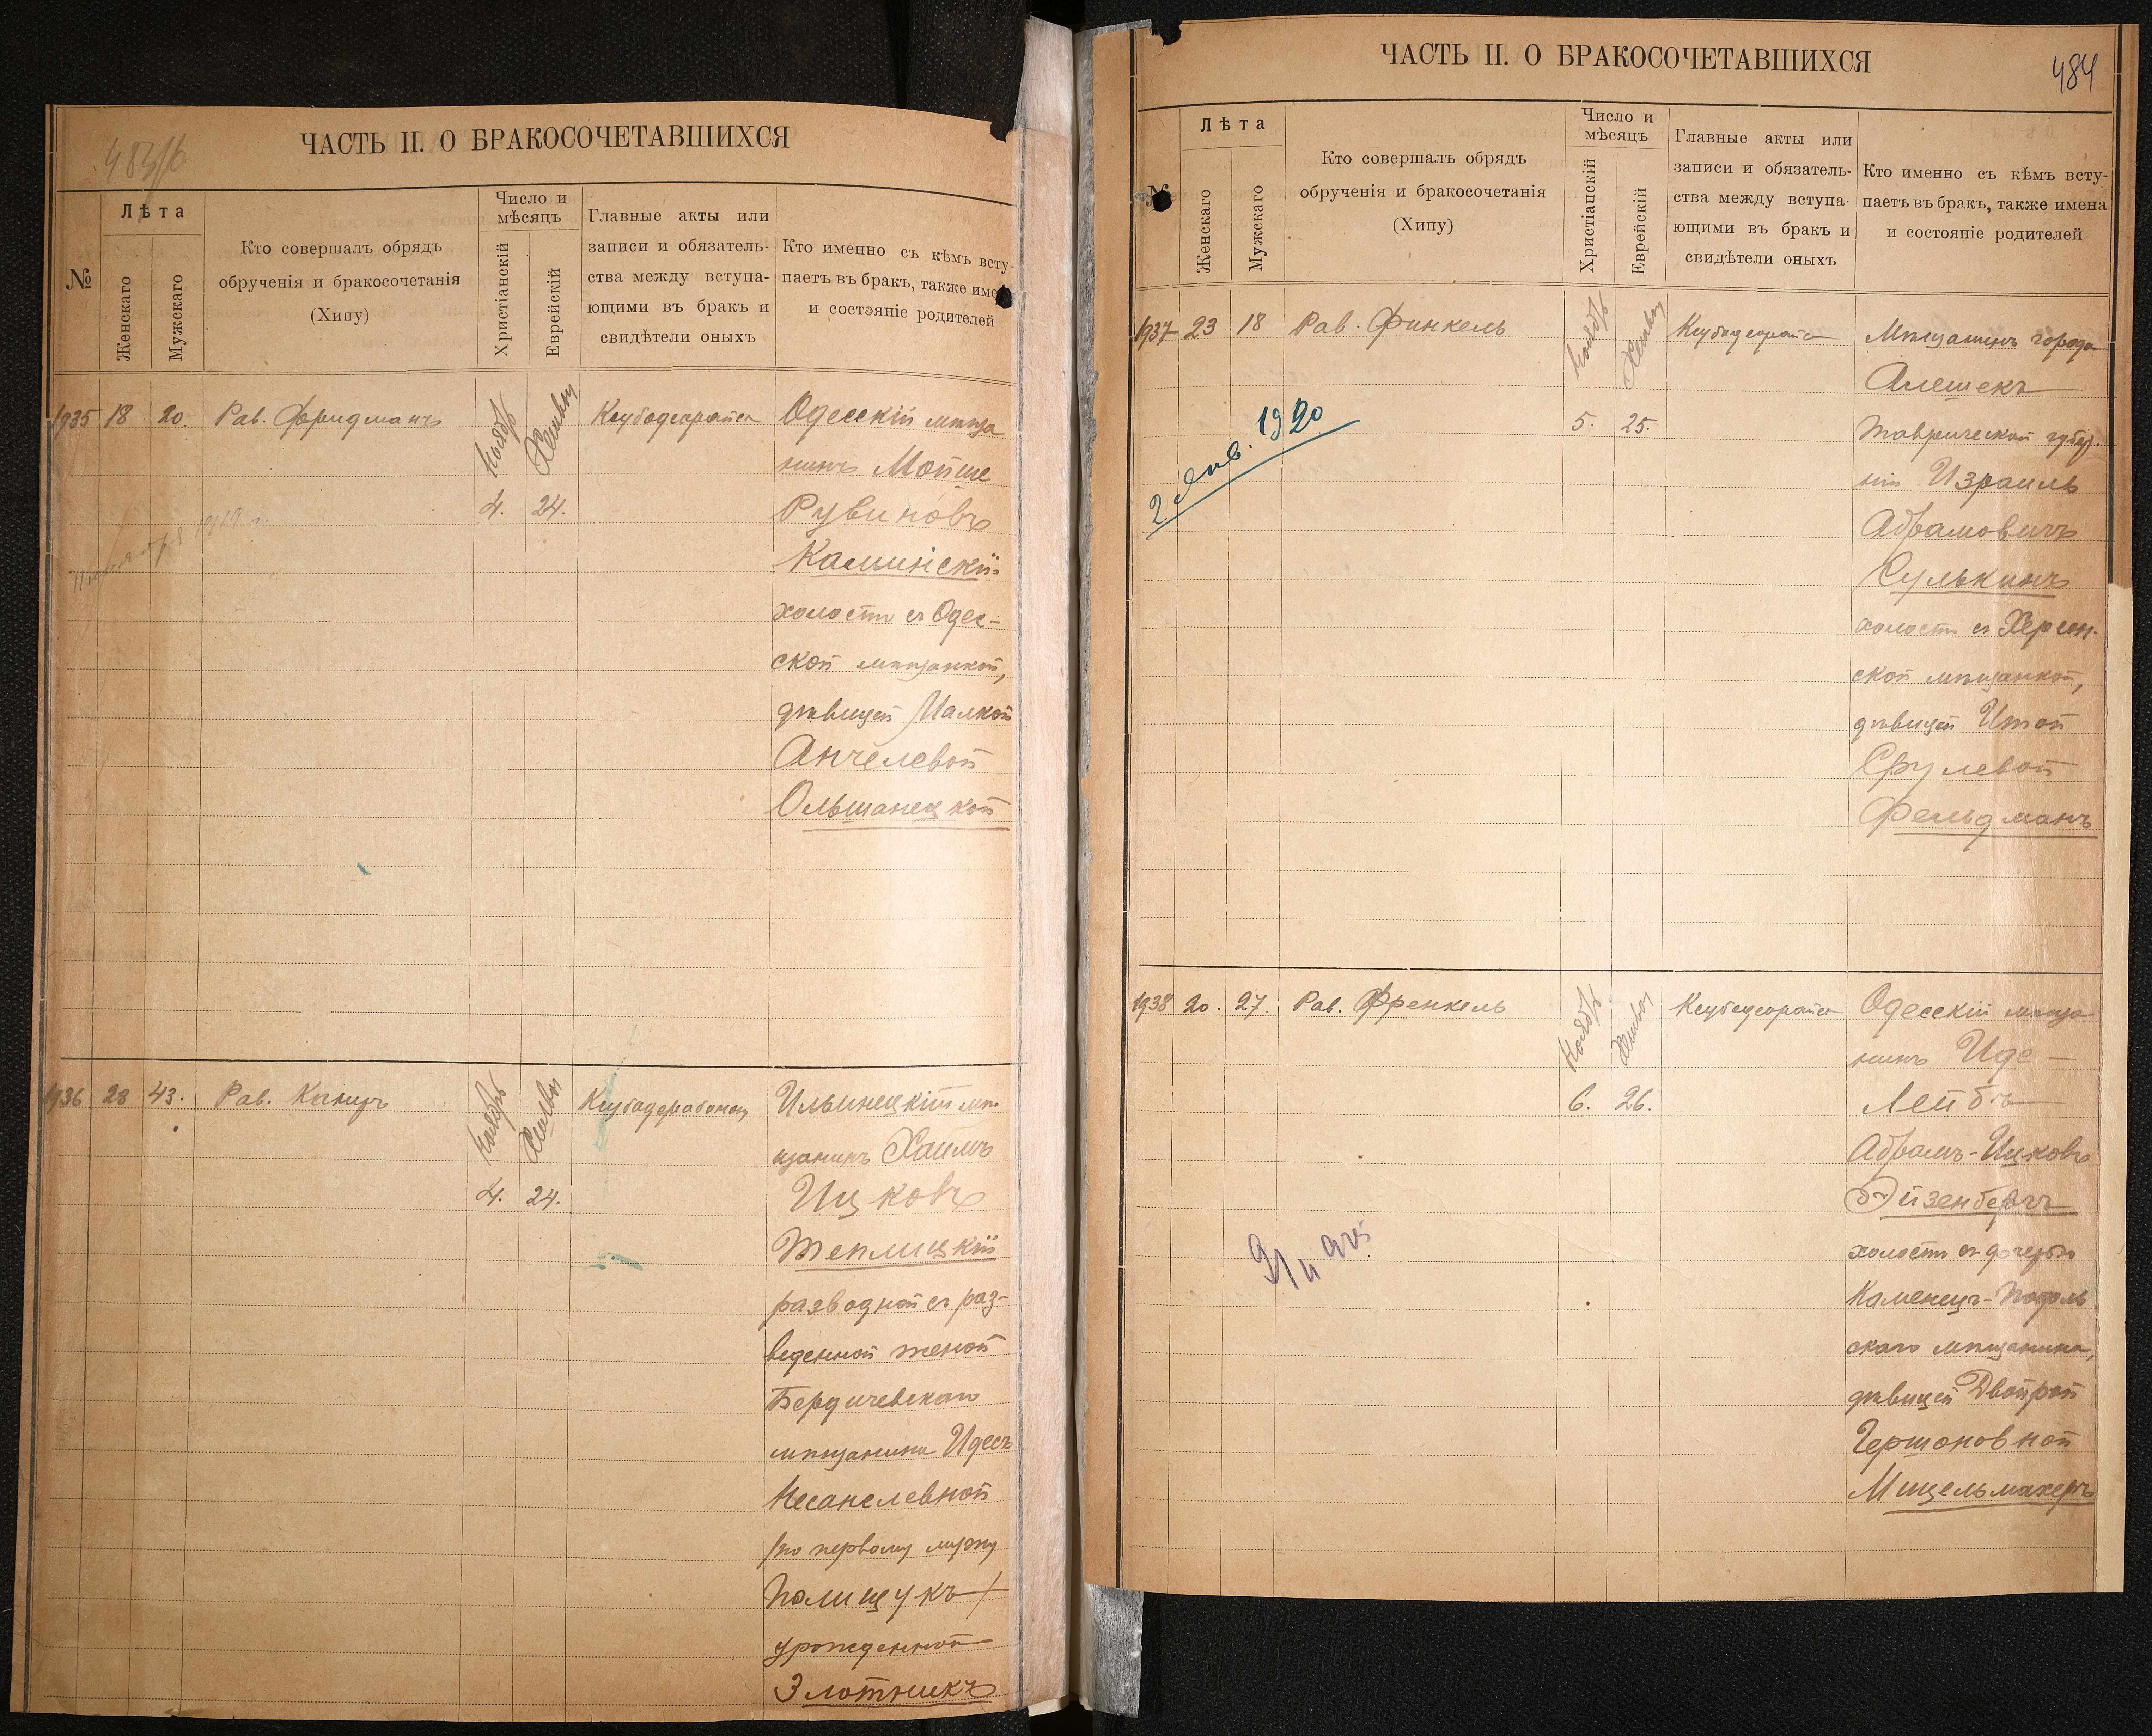 483/б
ЧАСТЬ II. О БРАКОСОЧЕТАВШИХСЯ
№
Лѣта
Женскаго
Мужскаго
Кто совершалъ обрядъ
обрученія и бракосочетанія
(Хипу)
Число и
мѣсяцъ
Христіанскій
Еврейскій
Главные акты или
записи и обязатель-
ства между вступа-
ющими въ бракъ и
свидѣтели оныхъ
Кто именно съ кѣмъ всту-
паетъ въ бракъ, также име
и состояніе родителей
1935 18 20. Рав. Фридманъ Ноябрь Хешвон Ксубадеорайса Одесскій мѣща
нинъ Мойше
4. 24. Рувиновъ
Каминскій
холостъ съ Одес-
ской мѣщанкой,
дѣвицей Малкой
Анчелевой
Ольшанецкой
1936 28 43. Рав. Ноябрь Хешвон Ксубадерабонон Ильинецкій мѣ-
щанинъ Хаимъ
4. 24. Ицковъ
Теплицкій
разводной съ раз-
веденной женой
Бердичевскаго
мѣщанина Идесъ
Несанелевной
/по первому мужу
Полищукъ/
урожденной
Злотникъ
484
ЧАСТЬ II. О БРАКОСОЧЕТАВШИХСЯ
№
Лѣта
Женскаго
Мужскаго
Кто совершалъ обрядъ
обрученія и бракосочетанія
(Хипу)
Число и
мѣсяцъ
Христіанскій
Еврейскій
Главные акты или
записи и обязатель-
ства между вступа-
ющими въ бракъ и
свидѣтели оныхъ
Кто именно съ кѣмъ всту-
паетъ въ бракъ, также имена
и состояніе родителей
1937 23 18 Рав. Финкель Ноябрь Хешвон Ксубадеорайса Мѣщанинъ города
Алешекъ
5. 25. Таврической губер-
ніи Израиль
Абрамовичъ
Сулькинъ
холостъ съ Херсон-
ской мѣщанкой,
дѣвицей Итой
Срулевой
Фельдманъ
2 Янв. 1920
1938 20. 27. Рав. Френкель Ноябрь Хешвон Ксубадеорайса Одесскій мѣща
нинъ Иде-
6. 26. Лейбъ
Абрамъ-Ицковъ
Эйзенбергъ
холостъ съ дочерью
Каменецъ-Подоль
скаго мѣщанина,
дѣвицей Двойрой
Гершоновной
Мицельмахеръ